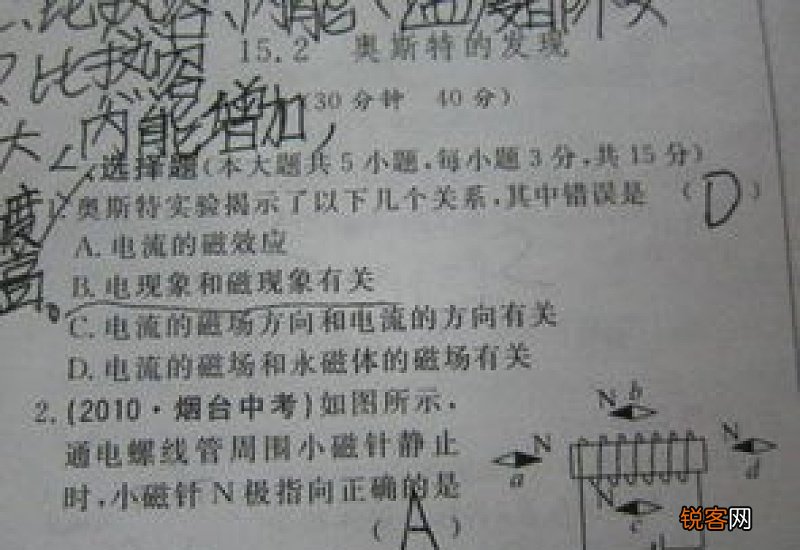 、比热容、内能(温度首阶
15.2 奥斯特的发现
比热容
(30分钟 40分)
大、内能增加,
一、选择题(本大题共5小题,每小题3分,共15分)
度 1.奥斯特实验揭示了以下几个关系,其中错误是 (D)
A.电流的磁效应
高。 B.电现象和磁现象有关
C.电流的磁场方向和电流的方向有关
D.电流的磁场和永磁体的磁场有关
2.(2010·烟台中考)如图所示,
通电螺线管周围小磁针静止
时,小磁针N极指向正确的是
(A)
N b
N a
N d
N c
锐客网